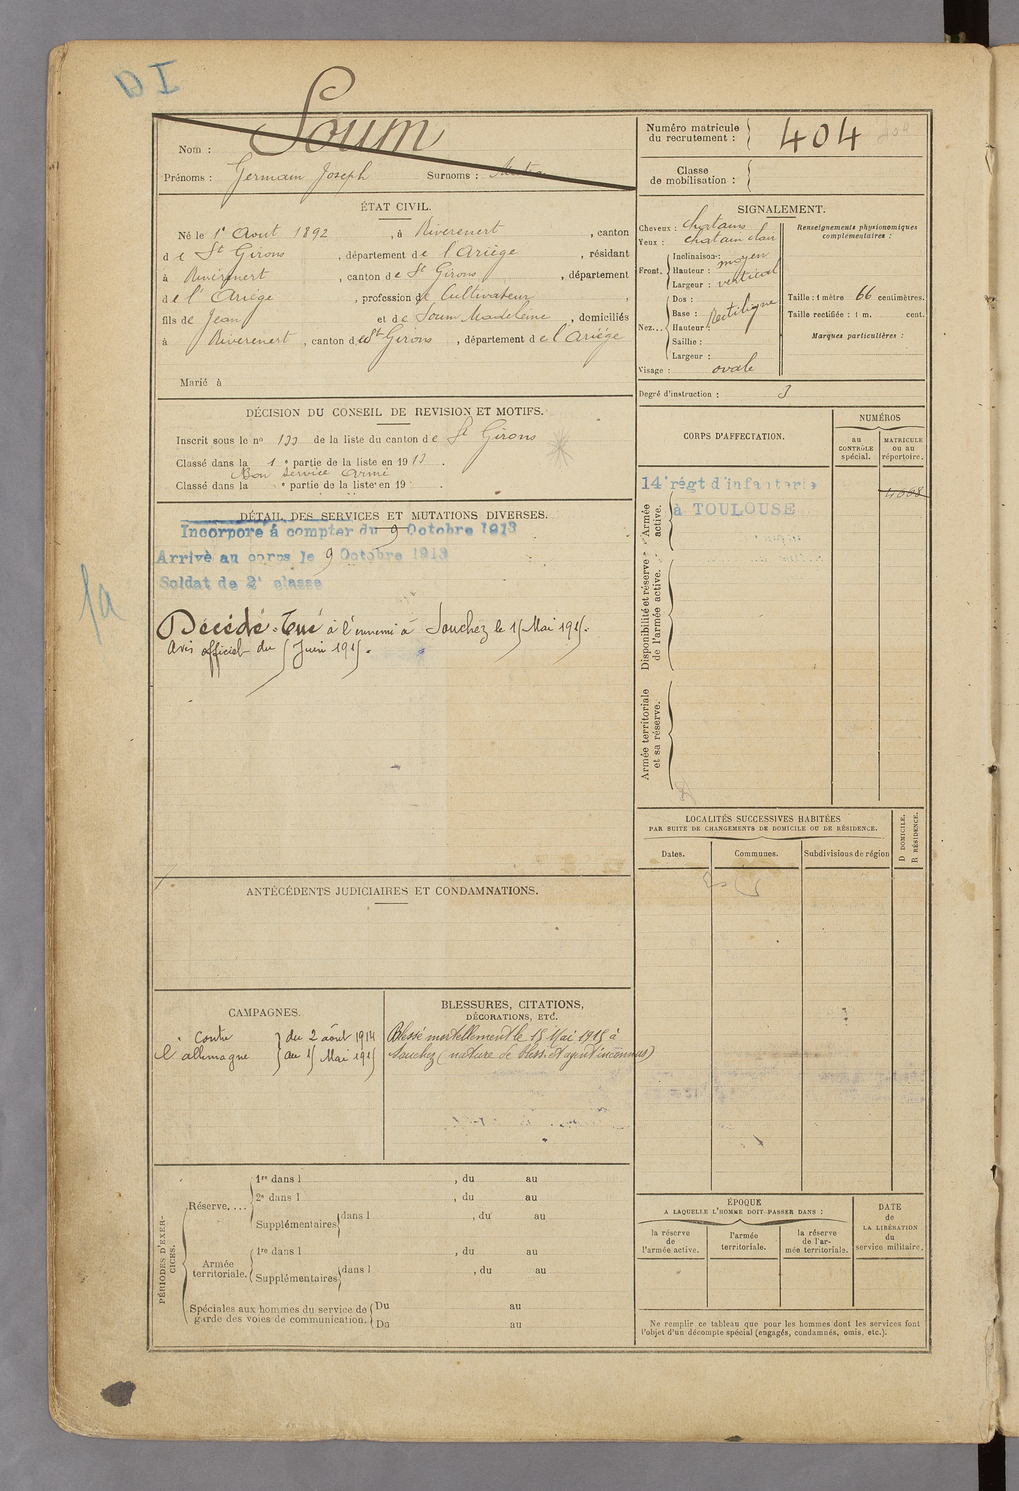 DI
Nom : Soum
Prénoms : Germain Joseph Surnoms :
Numéro matricule du recrutement : 404
Classe de mobilisation :
ÉTAT CIVIL.
Né le 1r Aout 1892, à Rivèrenert, canton
de St Girons, département de l'Ariège, résidant
à Rivèrenert, canton de St Girons, département
de l'Ariège, profession de Cultivateur,
fils de Jean et de Soum Madeleine, domiciliés
à Rivèrenert, canton de St Girons, département de l'Ariège
Marié à
SIGNALEMENT.
Cheveux : chatains
Yeux : chatain clair
Front. Inclinaison : moyen
Hauteur : vertical
Largeur :
Nez... Dos : Rectiligne
Base :
Hauteur :
Saillie :
Largeur :
Visage : ovale
Renseignements physionomiques complémentaires :
Taille : 1 mètre 66 centimètres.
Taille rectifiée : 1 m. cent.
Marques particulières :
Degré d'instruction : 3
DÉCISION DU CONSEIL DE REVISION ET MOTIFS.
Inscrit sous le no 133 de la liste du canton de St Girons
Classé dans la 1e partie de la liste en 1913.
Bon service armé
Classé dans la e partie de la liste en 19 .
DÉTAIL DES SERVICES ET MUTATIONS DIVERSES.
Incorporé à compter du 9 Octobre 1913
Arrivé au corps le 9 Octobre 1913
Soldat de 2e classe
Décédé. Tué à l'ennemi à Souchez le 15 Mai 1915.
Avis officiel du 5 Juin 1915.
CORPS D'AFFECTATION.
NUMÉROS
au CONTRÔLE spécial.
MATRICULE ou au répertoire.
14e régt d'infanterie
à TOULOUSE
4008
Armée active.
Disponibilité et réserve de l'armée active.
Armée territoriale et sa réserve.
LOCALITÉS SUCCESSIVES HABITÉES
PAR SUITE DE CHANGEMENTS DE DOMICILE OU DE RÉSIDENCE.
Dates.
Communes.
Subdivisions de région
D DOMICILE.
R RÉSIDENCE.
ANTÉCÉDENTS JUDICIAIRES ET CONDAMNATIONS.
CAMPAGNES.
Contre l'allemagne
du 2 août 1914
au 15 Mai 1915
BLESSURES, CITATIONS,
DÉCORATIONS, ETC.
Blessé mortellement le 15 Mai 1915 à
Souchez (nature de bless. et agent inconnus)
PÉRIODES D'EXERCICES.
Réserve....
1re dans l , du au
2e dans l , du au
Supplémentaires dans l , du au
Armée territoriale.
1re dans l , du au
Supplémentaires dans l , du au
Spéciales aux hommes du service de Du au
garde des voies de communication. Du au
ÉPOQUE
A LAQUELLE L'HOMME DOIT PASSER DANS :
la réserve de l'armée active.
l'armée territoriale.
la réserve de l'armée territoriale.
DATE de LA LIBÉRATION du service militaire.
Ne remplir ce tableau que pour les hommes dont les services font
l'objet d'un décompte spécial (engagés, condamnés, omis, etc.).